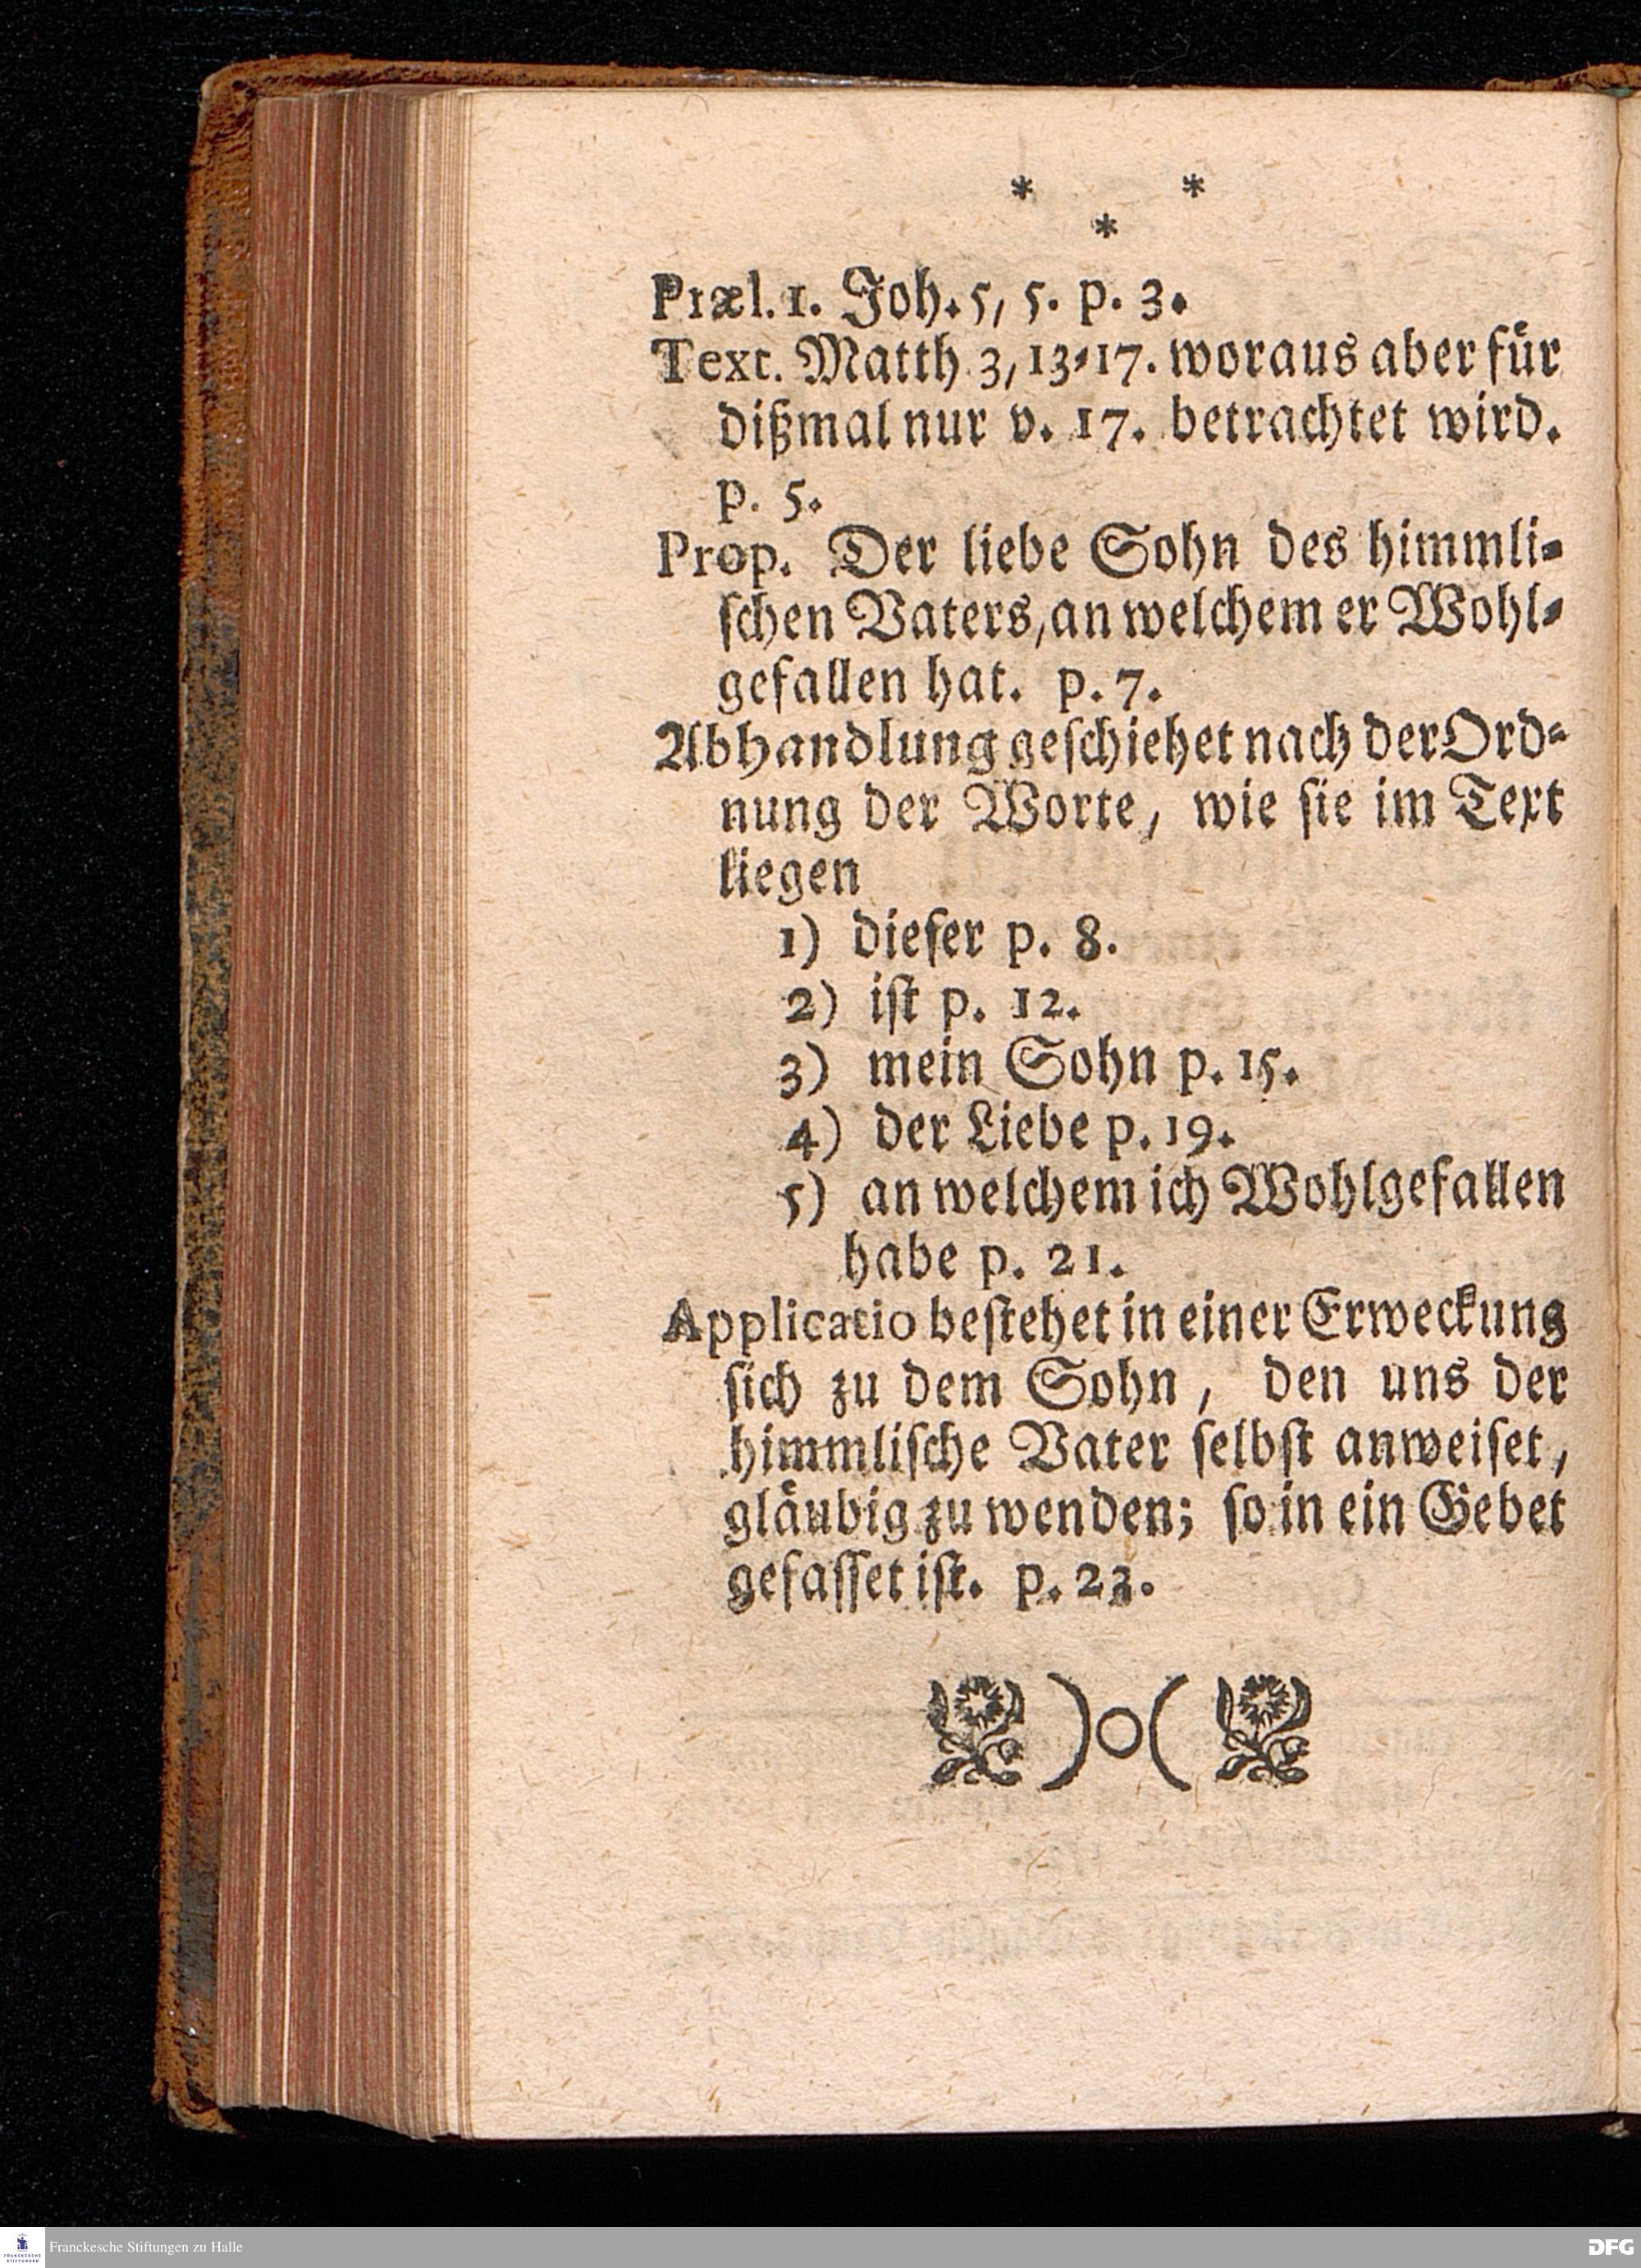 * *
*
Præl. 1. Joh. 5, 5. p. 3.
Text. Matth 3, 13-17. woraus aber für
dißmal nur v. 17. betrachtet wird.
p. 5.
Prop. Der liebe Sohn des himmli-
schen Vaters, an welchem er Wohl-
gefallen hat. p. 7.
Abhandlung geschiehet nach der Ord-
nung der Worte, wie sie im Text
liegen
1) dieser p. 8.
2) ist p. 12.
3) mein Sohn p. 15.
4) der Liebe p. 19.
5) an welchem ich Wohlgefallen
habe p. 21.
Applicatio bestehet in einer Erweckung
sich zu dem Sohn, den uns der
himmlische Vater selbst anweiset,
gläubig zu wenden; so in ein Gebet
gefasset ist. p. 23.
)o(
FRANCKESCHE
STIFTUNGEN
Franckesche Stiftungen zu Halle
DFG